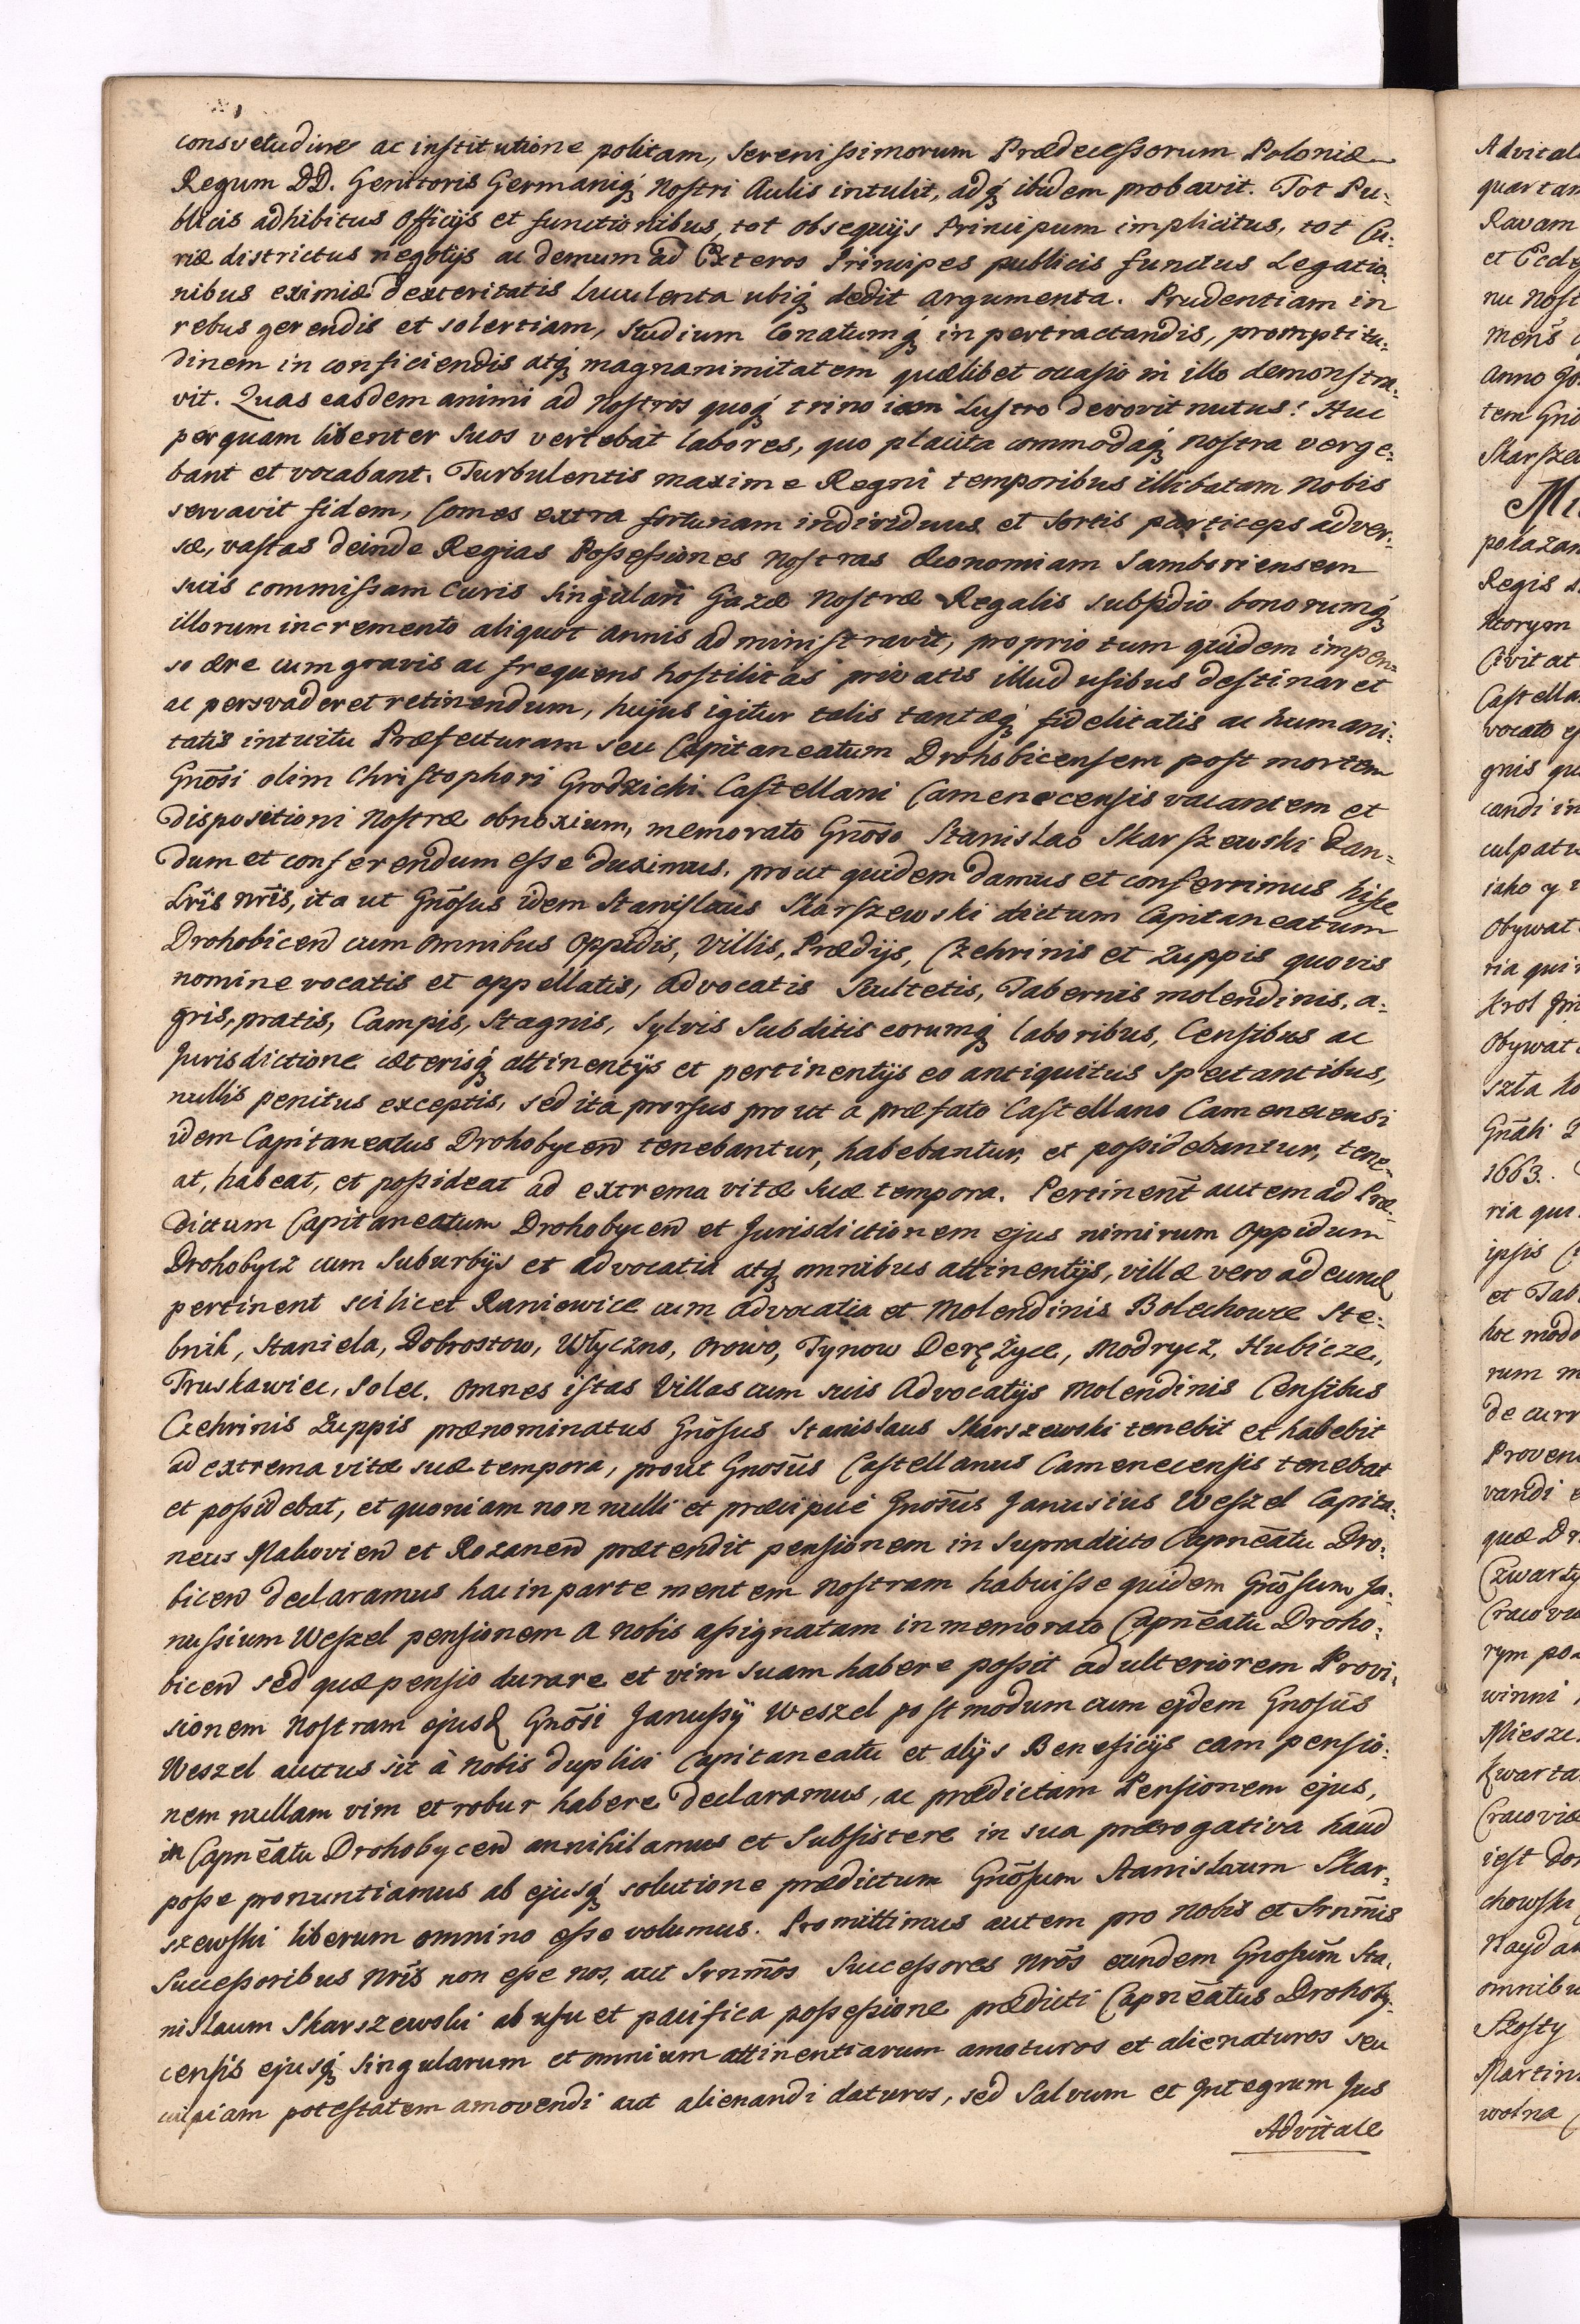 consvetudine ac institutione politam, serenissimorum Prædecessorum Poloniæ
Regum DD. Genitoris Germaniq́ Nostri Aulis intulit, adq́ ibidem probavit. Tot Pu-
blicis adhibitus Officijs et functionibus, tot obsequijs Principum implicitus, tot Cu-
riæ districtus negotijs ac demum ad Exteros Principes publicis functus Legatio
nibus eximiæ dexteritatis luculenta ubiq́ dedit argumenta. Prudentiam in
rebus gerendis et solertiam, studium Conatumq́ in pertractandis, promptitu-
dinem in conficiendis atq́ magnanimitatem quælibet occasio in illo demonstra-
vit. Quas easdem animi ad Nostros quoq́ trino iam Lustro devovit nutus! Huc
perquam libenter suos vertebat labores, quo placita commodaq́ nostra verge-
bant et vocabant. Turbulentis maxime Regni temporibus illibatam Nobis
servavit fidem, Comes extra fortunam individuus et sortis particeps adver-
sæ, vastas deinde Regias Possessiones Nostras Œconomiam Samboriensem
suis commissam curis singulari Gazæ Nostræ Regalis subsidio bonorumq́
illorum incremento aliquot annis administravit, proprio tum quidem impen-
so ære cum gravis ac frequens hostilitas privatis illud usibus destinaret
ac persvaderet retinendum, hujus igitur talis tantæq́ fidelitatis ac humani-
tatis intuitu Præfecturam seu Capitaneatum Drohobicensem post mortem
Gnōsi olim Christophori Grodzicki Castellani Camenecensis vacantem et
dispositioni Nostræ obnoxium, memorato Gnōso Stanislao Skarszewski dan-
dum et conferendum esse duximus, prout quidem damus et conferrimus hisce
Lr̄is nr̄is, ita ut Gnōsus idem Stanislaus Skarszewski dictum Capitaneatum
Drohobicen̄ cum omnibus Oppidis, Villis, Prædijs, Czehrinis et Zuppis quovis
nomine vocatis et appellatis, advocatis Scultetis, Tabernis molendinis, a-
gris, pratis, Campis, stagnis, Sylvis Subditis eorumq́ laboribus, Censibus ac
Jurisdictione cæterisq́ attinentijs et pertinentijs eo antiquitus spectantibus,
nullis penitus exceptis, sed ita prorsus prout a præfato Castellano Camenecensi
idem Capitaneatus Drohobycen̄ tenebantur, habebantur, et possidebantur, tene-
at, habeat, et possideat ad extrema vitæ suæ tempora. Pertinent̄ autem ad Præ-
dictum Capitaneatum Drohobycen̄ et Jurisdictionem ejus nimirum Oppidum
Drohobycz cum Suburbijs et advocatia atq́ omnibus attinentijs, villæ vero ad eund̄
pertinent scilicet Raniewice cum advocatia et Molendinis Bolechowce Ste-
bnik, Staniela, Dobrostow, Włyczno, Orowo, Tynow Derężyce, Modrycz, Hubicze,
Truskawiec, Solec. Omnes istas Villas cum suis Advocatijs Molendinis Censibus
Czehrinis Zuppis prænominatus Gnōsus Stanislaus Skarszewski tenebit et habebit
ad extrema vitæ suæ tempora, prout Gnosūs Castellanus Camenecensis tenebat
et possidebat, et quoniam non nulli et præcipue Gnosūs Janusius Weszel Capita-
neus Makovien̄ et Rozanen̄ prætendit pensionem in supradicto Capnēatu Dro-
bicen̄ declaramus hac in parte mentem Nostram habuisse quidem Gnōsum Ja-
nussium Weszel pensionem a Nobis assignatam in memorato Capnēatu Droho-
bicen̄ sed quæ pensio durare et vim suam habere possit ad ulteriorem Provi-
sionem Nostram ejusd̄ Gnōsi Janussÿ Weszel post modum cum ejdem Gnosūs
Weszel auctus sit à Nobis duplici Capitaneatu et alijs Beneficijs eam pensio-
nem nullam vim et robur habere declaramus, ac prædictam Pensionem ejus,
in Capnēatu Drohobycen̄ annihilamus et Subsistere in sua prærogativa haud
posse pronuntiamus ab ejusq́ solutione prædictum Gnōsum Stanislaum Skar-
szewski liberum omnino esse volumus. Promittimus autem pro Nobis et Srnm̄is
Successoribus Nr̄is non esse nos, aut Srnm̄os Successores Nrōs eundem Gnosūm Sta-
nislaum Skarszewski ab usu et pacifica possessione prædicti Capnēatus Drohoby-
censis ejusq́ singularum et omnium attinentiarum amoturos et alienaturos seu
cuipiam potestatem amovendi aut alienandi daturos, sed Salvum et Integrum Jus
Advitale